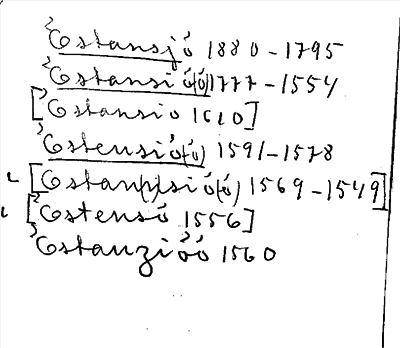 ²Estansjó 1880-1795
²Estansió(ó) 1777-1554
[³Estansio 1610]
³Estensió(ó) 1591-1578
[Estan(n)sió(ó) 1569-1549]
[²Estensó 1556]
³Estanzióó 1560